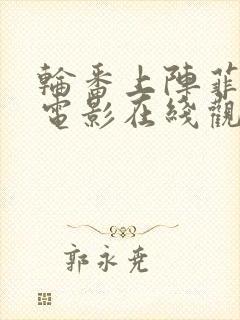 輪番上陣菲
電影在綫觀
郭永堯